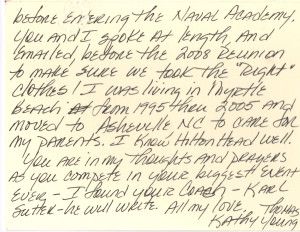 before entering the Naval Academy.
You and I spoke at length, and
emailed, before the 2008 Reunion
to make sure we took the "Right"
clothes! I was living in Myrtle
Beach from 1995 thru 2005 and
moved to Asheville NC to care for
my parents. I know Hilton Head well.
You are in my thoughts and prayers
as you compete in your biggest event
ever - I found your coach - Karl
Sutter - he will write. All my love,
Thomas
Kathy Young